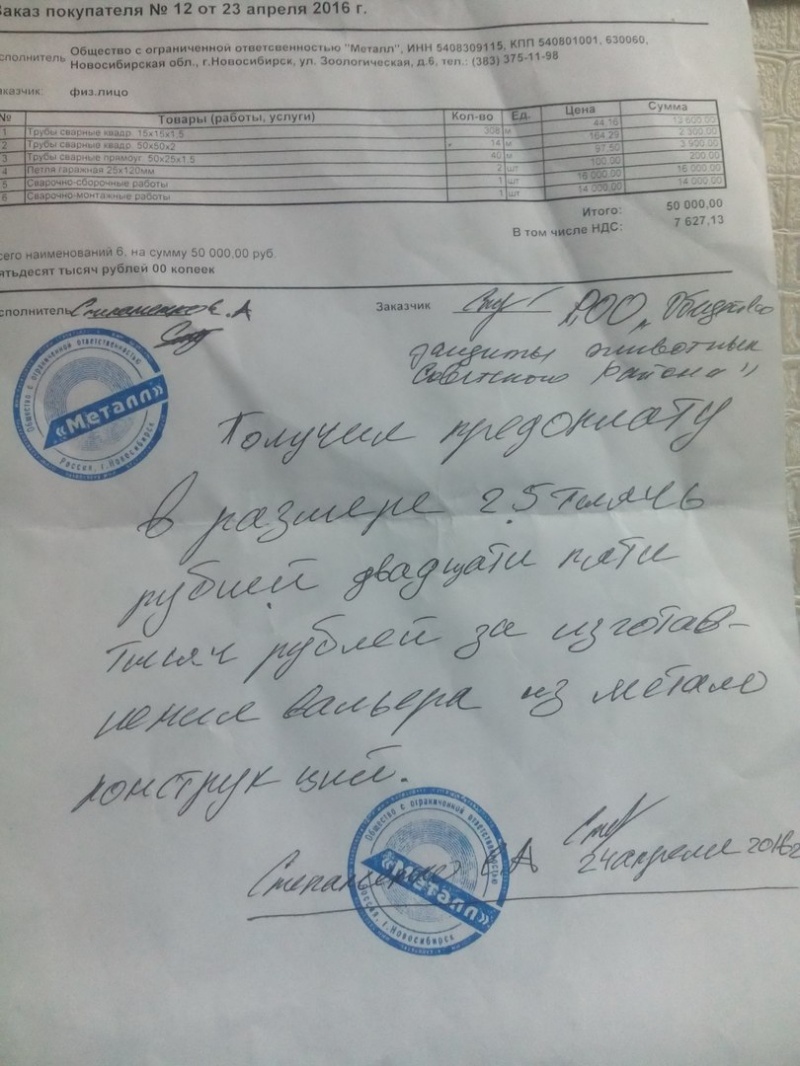 Заказ покупателя № 12 от 23 апреля 2016 г.
сполнитель Общество с ограниченной ответсвенностью "Металл", ИНН 5408309115, КПП 540801001, 630060,
Новосибирская обл., г.Новосибирск, ул. Зоологическая, д.6, тел.: (383) 375-11-98
аказчик: физ.лицо
№ Товары (работы, услуги) Кол-во Ед. Цена Сумма
1 Трубы сварные квадр. 15х15х1.5 308 м 44,16 13 600,00
2 Трубы сварные квадр. 50х50х2 14 м 164,29 2 300,00
3 Трубы сварные прямоуг. 50х25х1.5 40 м 97,50 3 900,00
4 Петля гаражная 25х120мм 2 шт 100,00 200,00
5 Сварочно-сборочные работы 1 шт 16 000,00 16 000,00
6 Сварочно-монтажные работы 1 шт 14 000,00 14 000,00
Итого: 50 000,00
В том числе НДС: 7 627,13
сего наименований 6, на сумму 50 000,00 руб.
ятьдесят тысяч рублей 00 копеек
сполнитель Степаненко С.А Заказчик РОО „Общество
защиты животных
Советского района"
Общество с ограниченной ответственностью
«Металл»
Россия, г.Новосибирск
Получил предоплату
в размере 25 тысячь
рублей двадцати пяти
тысяч рублей за изготав-
ления вальера из метало
конструкций.
Общество с ограниченной ответственностью
«Металл»
г.Новосибирск
Степаненко С А 24 апреля 2016г